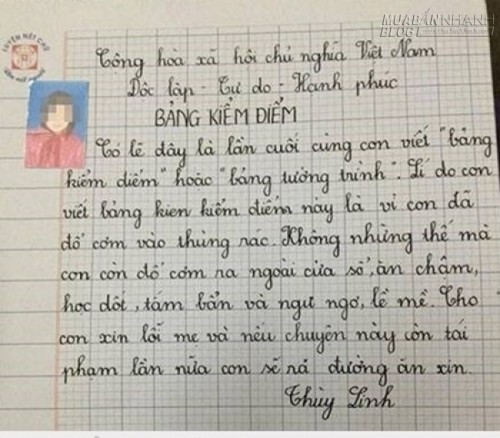 MUABANNHANH
BLOG
LUYỆN NÉT CHỮ
Cộng hòa xã hội chủ nghĩa Việt Nam
Độc lập - Tự do - Hạnh phúc
BẢNG KIỂM ĐIỂM
Có lẽ đây là lần cuối cùng con viết "bảng
kiểm điểm" hoặc "bảng tường trình". Lí do con
viết bảng kien kiểm điểm này là vì con đã
đổ cơm vào thùng rác. Không những thế mà
con còn đổ cơm ra ngoài cửa sổ, ăn chậm,
học dốt, tắm bẩn và ngu ngơ, lề mề. Cho
con xin lỗi mẹ và nếu chuyện này còn tái
phạm lần nữa con sẽ ra đường ăn xin.
Thùy Linh